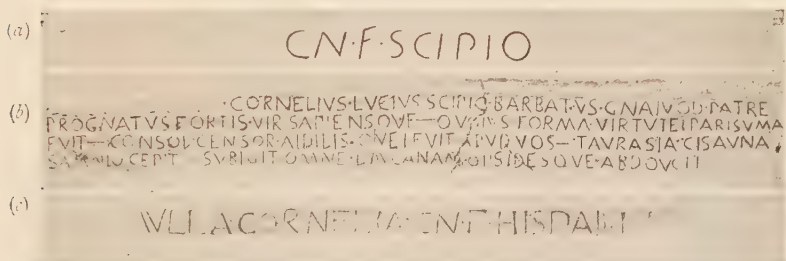 (a) CN·F·SCIPIO
(b) ·CORNELIVS·LVCIVS SCIPIO·BARBATVS·GNAIVOD·PATRE
PROGNATVS FORTIS·VIR SAPIENSQVE—QVOIVS FORMA·VIRTVTEI PARISVMA
FVIT—CONSOL CENSOR·AIDILIS·QVEI FVIT APVD VOS—TAVRASIA·CISAVNA
SAMNIO CEPIT SVBIGIT OMNE LOVCANAM OPSIDESQVE·ABDOVCIT
(c) CORNELIA·CN·F·HISPALLI